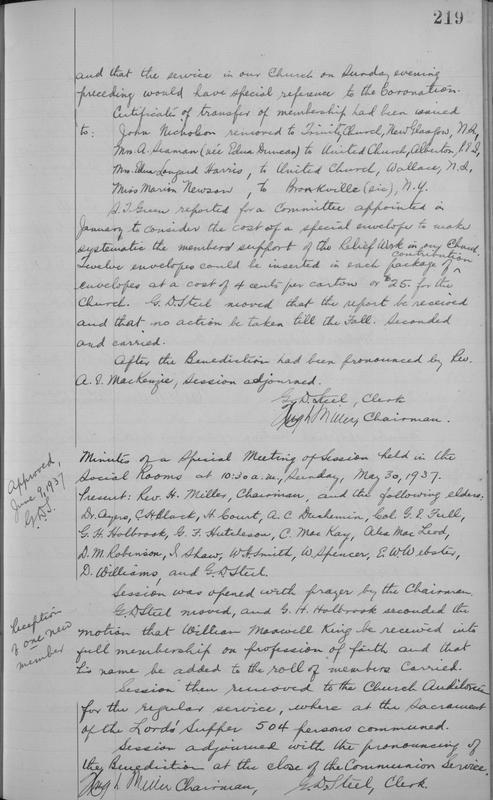 219
and that the service in our Church on Sunday evening
preceding would have special reference to the Coronation.
Certificates of transfer of membership had been issued
to: John Nicholson removed to Trinity Church, New Glasgow, N.S,
Mrs. A. Seaman (née Edna Duncan) to United Church, Alberton, P.E.I,
Mrs. Edna Longard Harris, to United Church, Wallace, N.S,
Miss Marion Newson, to Bronkville (sic), N.Y.
S. T. Green reported for a Committee appointed in
January to consider the cost of a special envelope to make
systematic the members' support of the Relief Work in our Church.
Twelve envelopes could be inserted in each package of contribution
envelopes at a cost of 4 cents per carton or $25. for the
Church. G. D. Steel moved that the report be received
and that no action be taken till the Fall. Seconded
and carried.
After the Benediction had been pronounced by Rev.
A. D. MacKenzie, Session adjourned.
G. D. Steel, Clerk
Hugh Miller, Chairman.
Approved,
June 9, 1937
G.D.S.
Minutes of a Special Meeting of Session held in the
Social Rooms at 10:30 a.m., Sunday, May 30, 1937.
Present: Rev. H. Miller, Chairman, and the following elders:
Dr. Ayers, C. H. Black, H. Court, A. C. Duchemin, Col. G. E. Full,
G. H. Holbrook, G. F. Hutcheson, C. MacKay, Alex MacLeod,
D. M. Robinson, I. Shaw, W. H. Smith, W. Spencer, E. W. Webster,
D. Williams, and G. D. Steel.
Session was opened with prayer by the Chairman.
Reception
of one new
member
G. D. Steel moved, and G. H. Holbrook seconded the
motion that William Maxwell King be received into
full membership on profession of faith and that
his name be added to the roll of members. Carried.
Session then removed to the Church Auditorium
for the regular service, where at the Sacrament
of the Lord's Supper 504 persons communed.
Session adjourned with the pronouncing of
the Benediction at the close of the Communion Service.
Hugh Miller Chairman, G. D. Steel, Clerk.